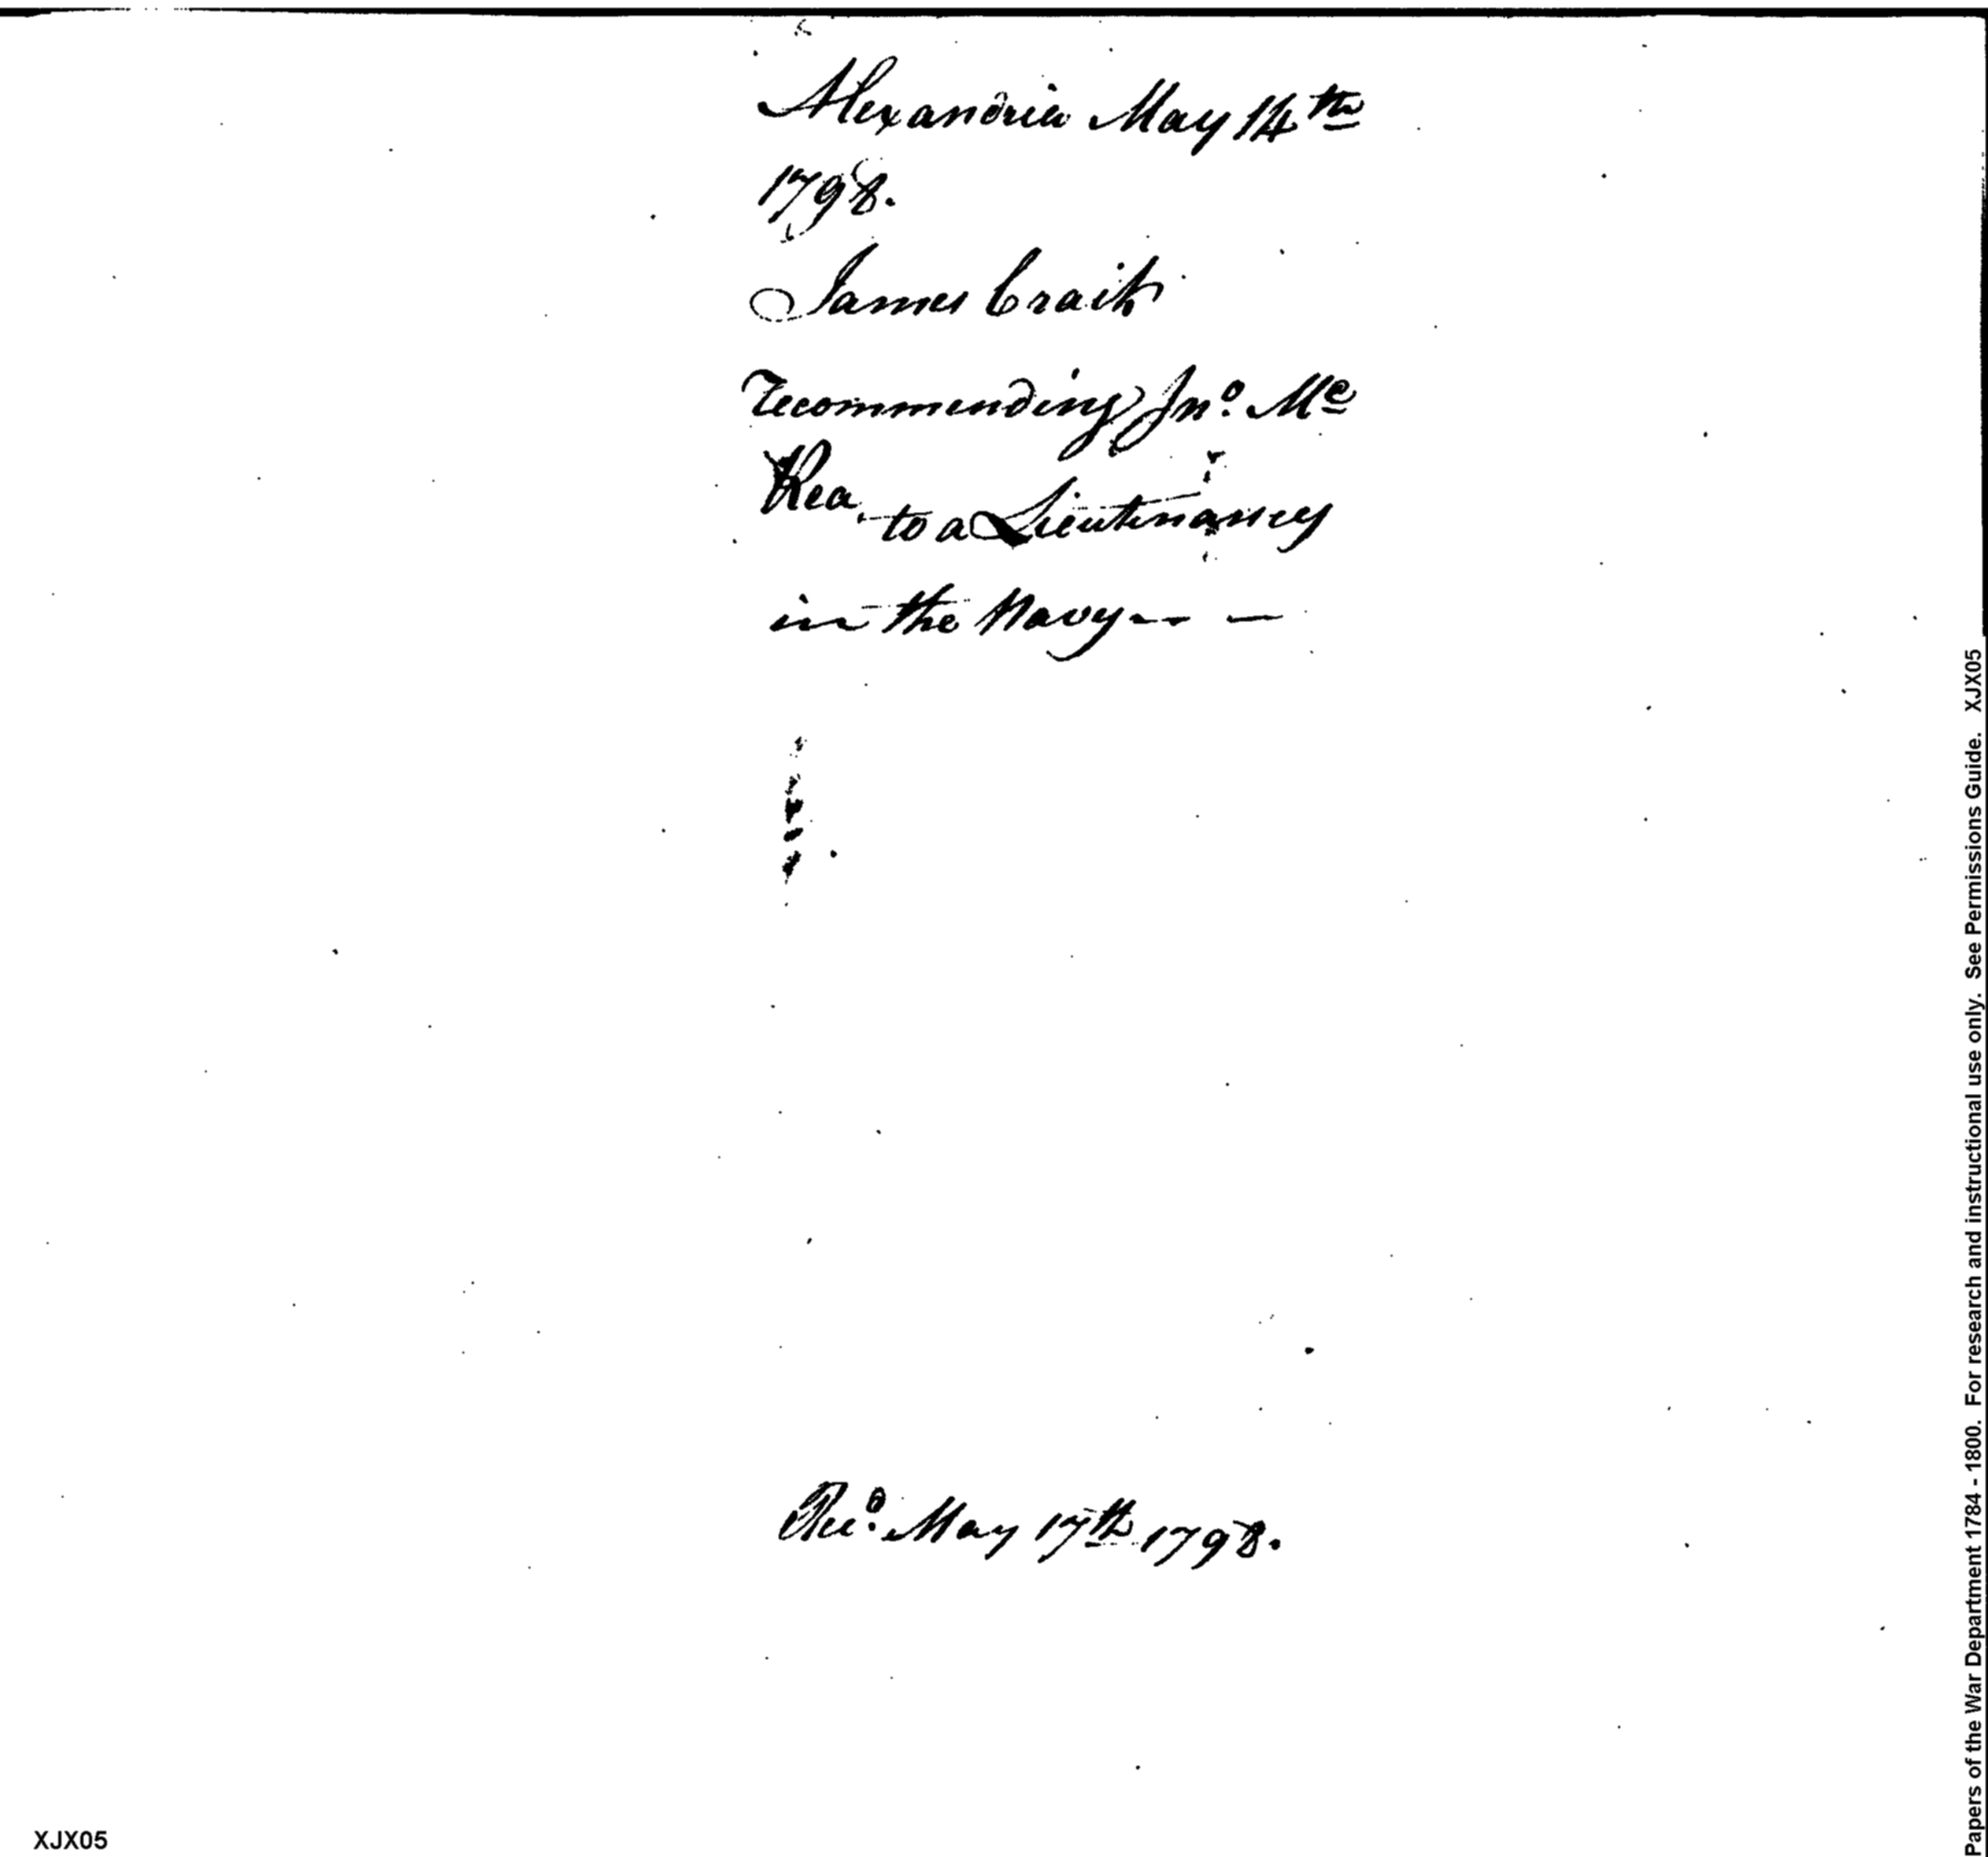 Alexandria May 14th
1798.
James Craik
recommending Jno. Mc
Rea to a Lieutenancy
in the Navy -- —
Recd. May 17th 1798.
XJX05
Papers of the War Department 1784 - 1800. For research and instructional use only. See Permissions Guide. XJX05